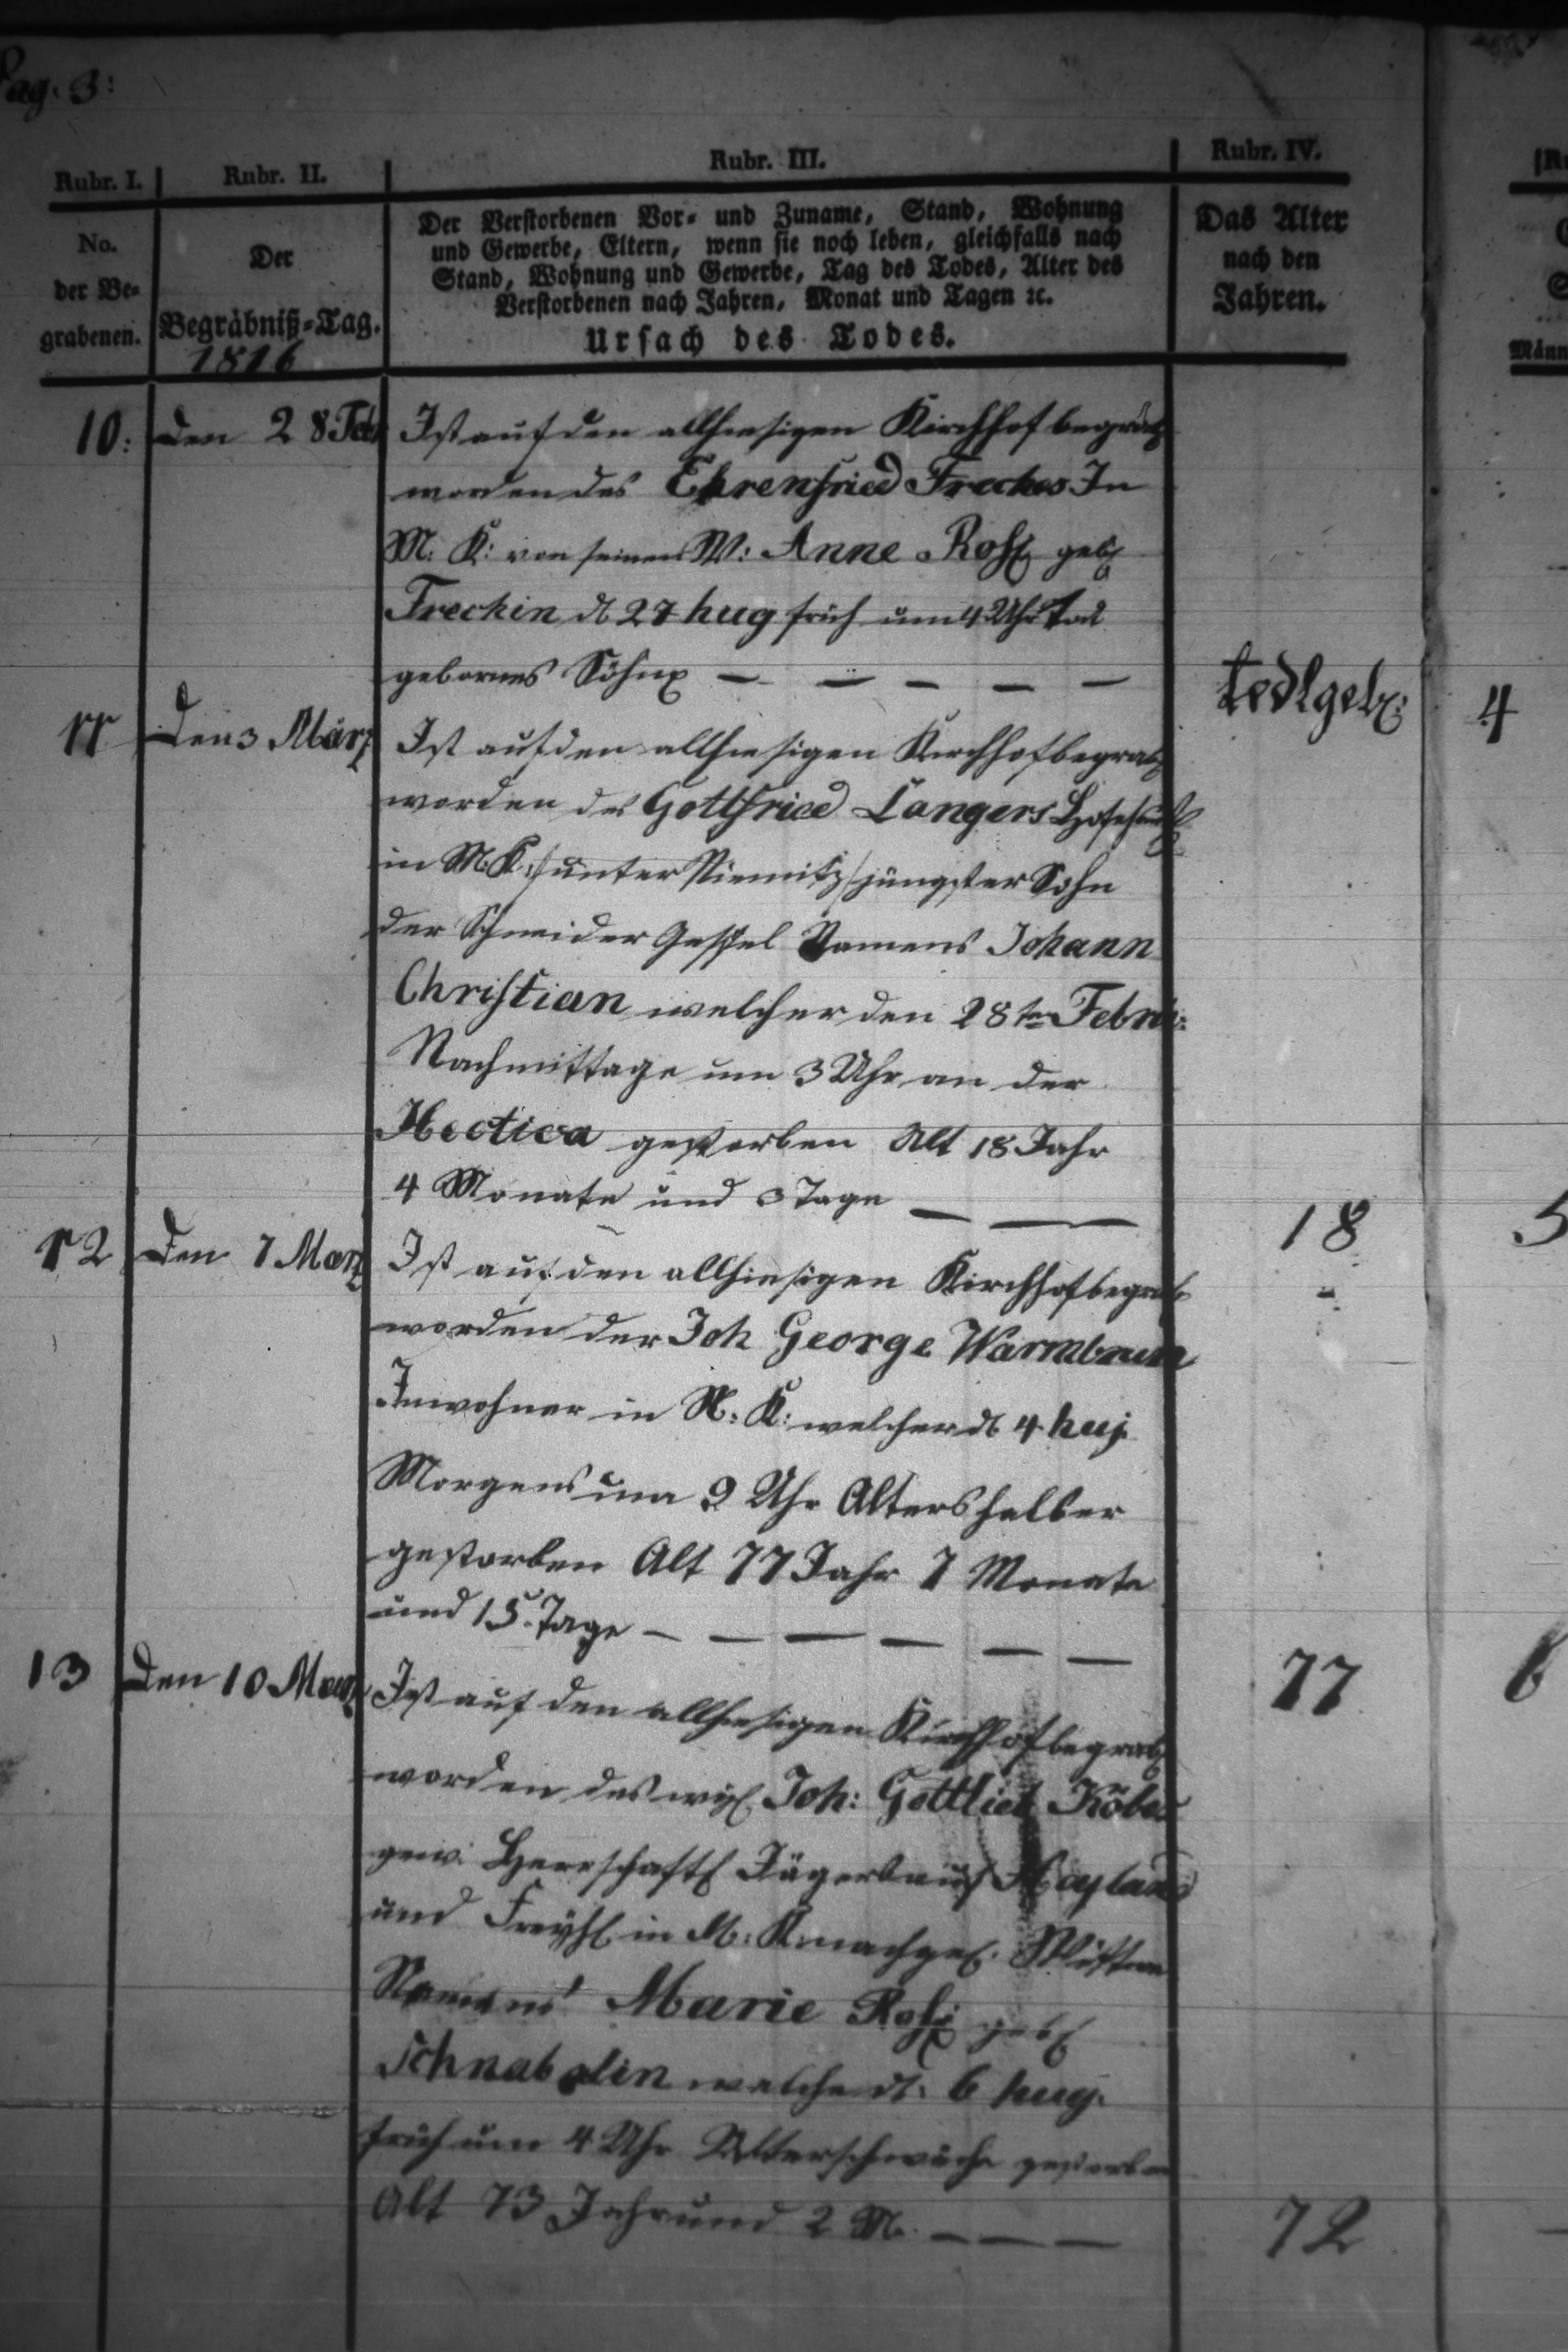 Pag. 3:
Rubr. I.
Rubr. II.
Rubr. III.
Rubr. IV.
No.
der Be=
grabenen.
Der
Begräbniß=Tag.
1816
Der Verstorbenen Vor= und Zuname, Stand, Wohnung
und Gewerbe, Eltern, wenn sie noch leben, gleichfalls nach
Stand, Wohnung und Gewerbe, Tag des Todes, Alter des
Verstorbenen nach Jahren, Monat und Tagen ꝛc.
Ursach des Todes.
Das Alter
nach den
Jahren.
Männ
10: den 28 Feb Ist auf den allhiesigen Kirchhof begrab
worden des Ehrenfried Freches In
M: K: von seinem W: Anne Ros geb
Frechin d 27 huj früh um 4 Uhr tod
gebornes Söhn — — — — —
todtgeb: 4
11 Den 3 März Ist auf den allhiesigen Kirchhof begrab
worden des Gottfried Langers
in M. K: /unter jüngster Sohn
der Schneider Gesel Namens Johann
Christian welcher den 28ten Febru:
Nachmittage um 3 Uhr an der
Hectica gestorben Alt 18 Jahr
4 Monate und 3 Tage — —
18 5
12 Den 7 Marz Ist auf den allhiesigen Kirchhof begrab
worden der Joh George Warmbrun
Inwohner in N: K: welcher d 4 huj
Morgens um 9 Uhr Altershalber
gestorben Alt 77 Jahr 7 Monate
und 15 Tage — — — — — —
77 6
13 Den 10 Marz Ist auf den allhiesigen Kirchhof begrab
worden des Joh: Gottlieb
gew. Herrschaftl Jägers auf
und in M: K: nachgel. Wittwe
Namens Marie Ros geb
Schnabelin welche d: 6 huj.
früh um 4 Uhr Alterschwäche gestorben
Alt 73 Jahr und 2 M. — — —
72